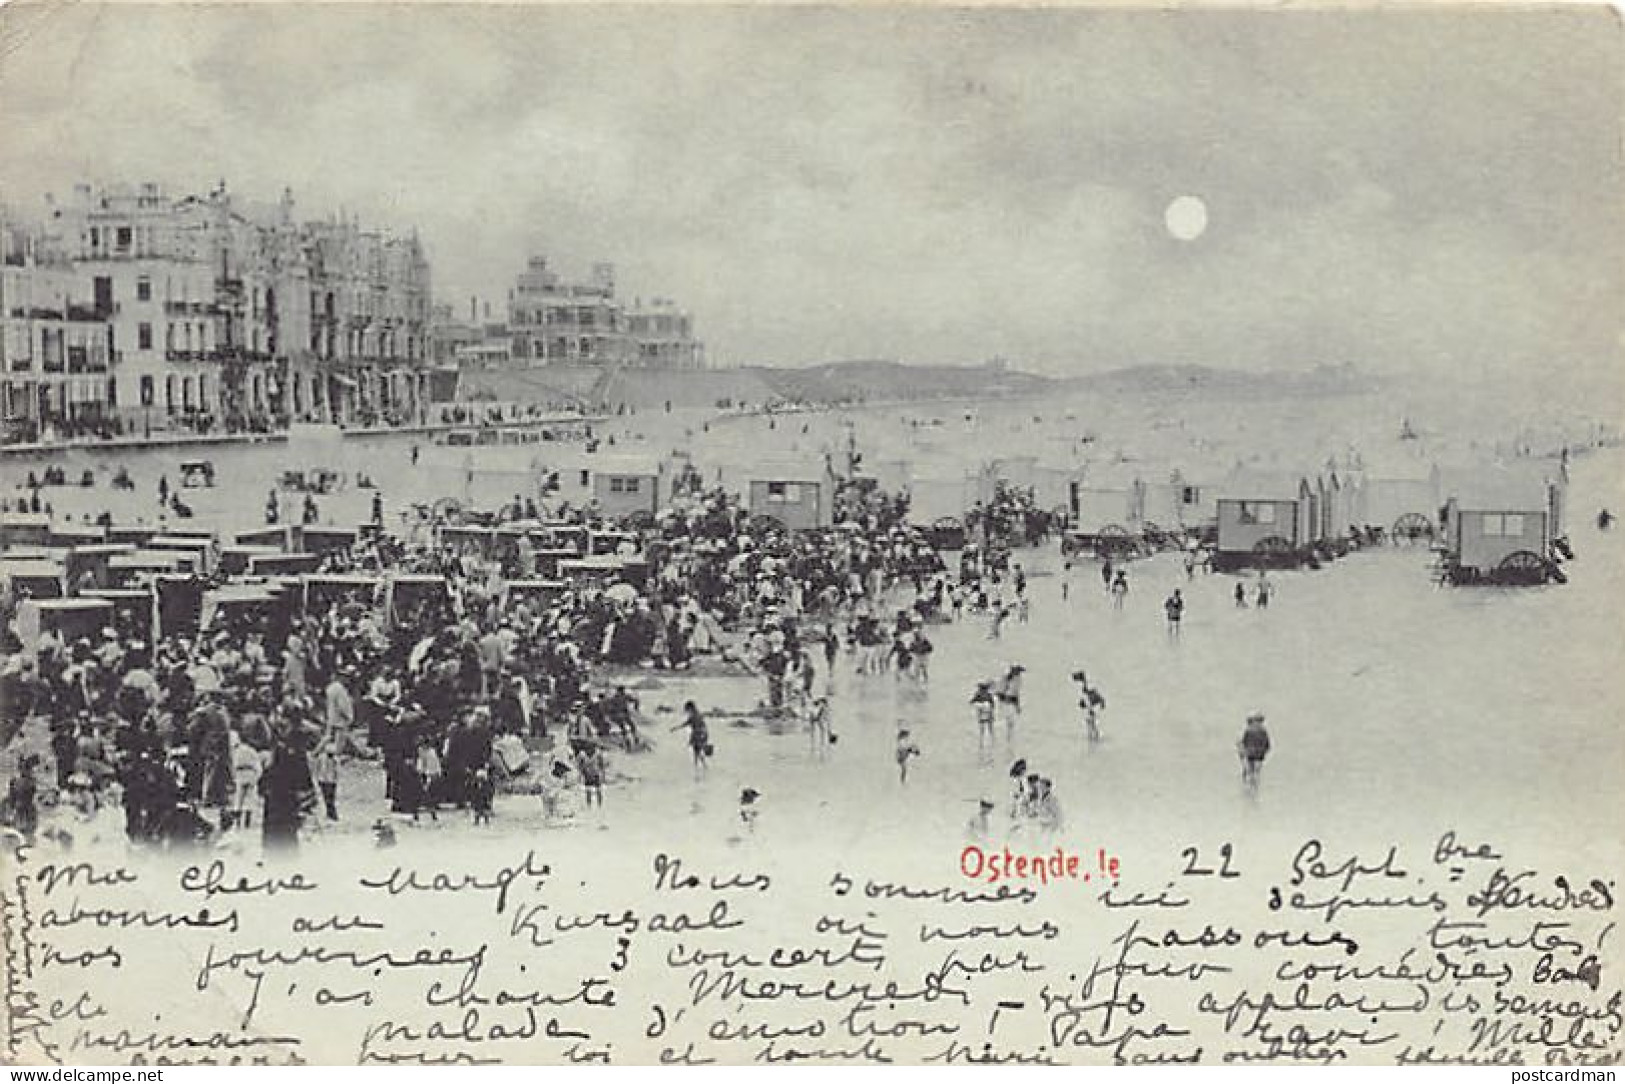 Ostende, le 22 Sept.bre
Ma chère Margte. Nous sommes ici depuis Vendredi
abonnés au Kursaal où nous passons toutes
nos journées. 3 concerts par jour comédies bals
etc J'ai chanté Mercredi - vifs applaudissements
maman malade d'émotion, Papa ravi! Mille
baisers pour toi et tante Marie sans oublier
delcampe.net
postcardman